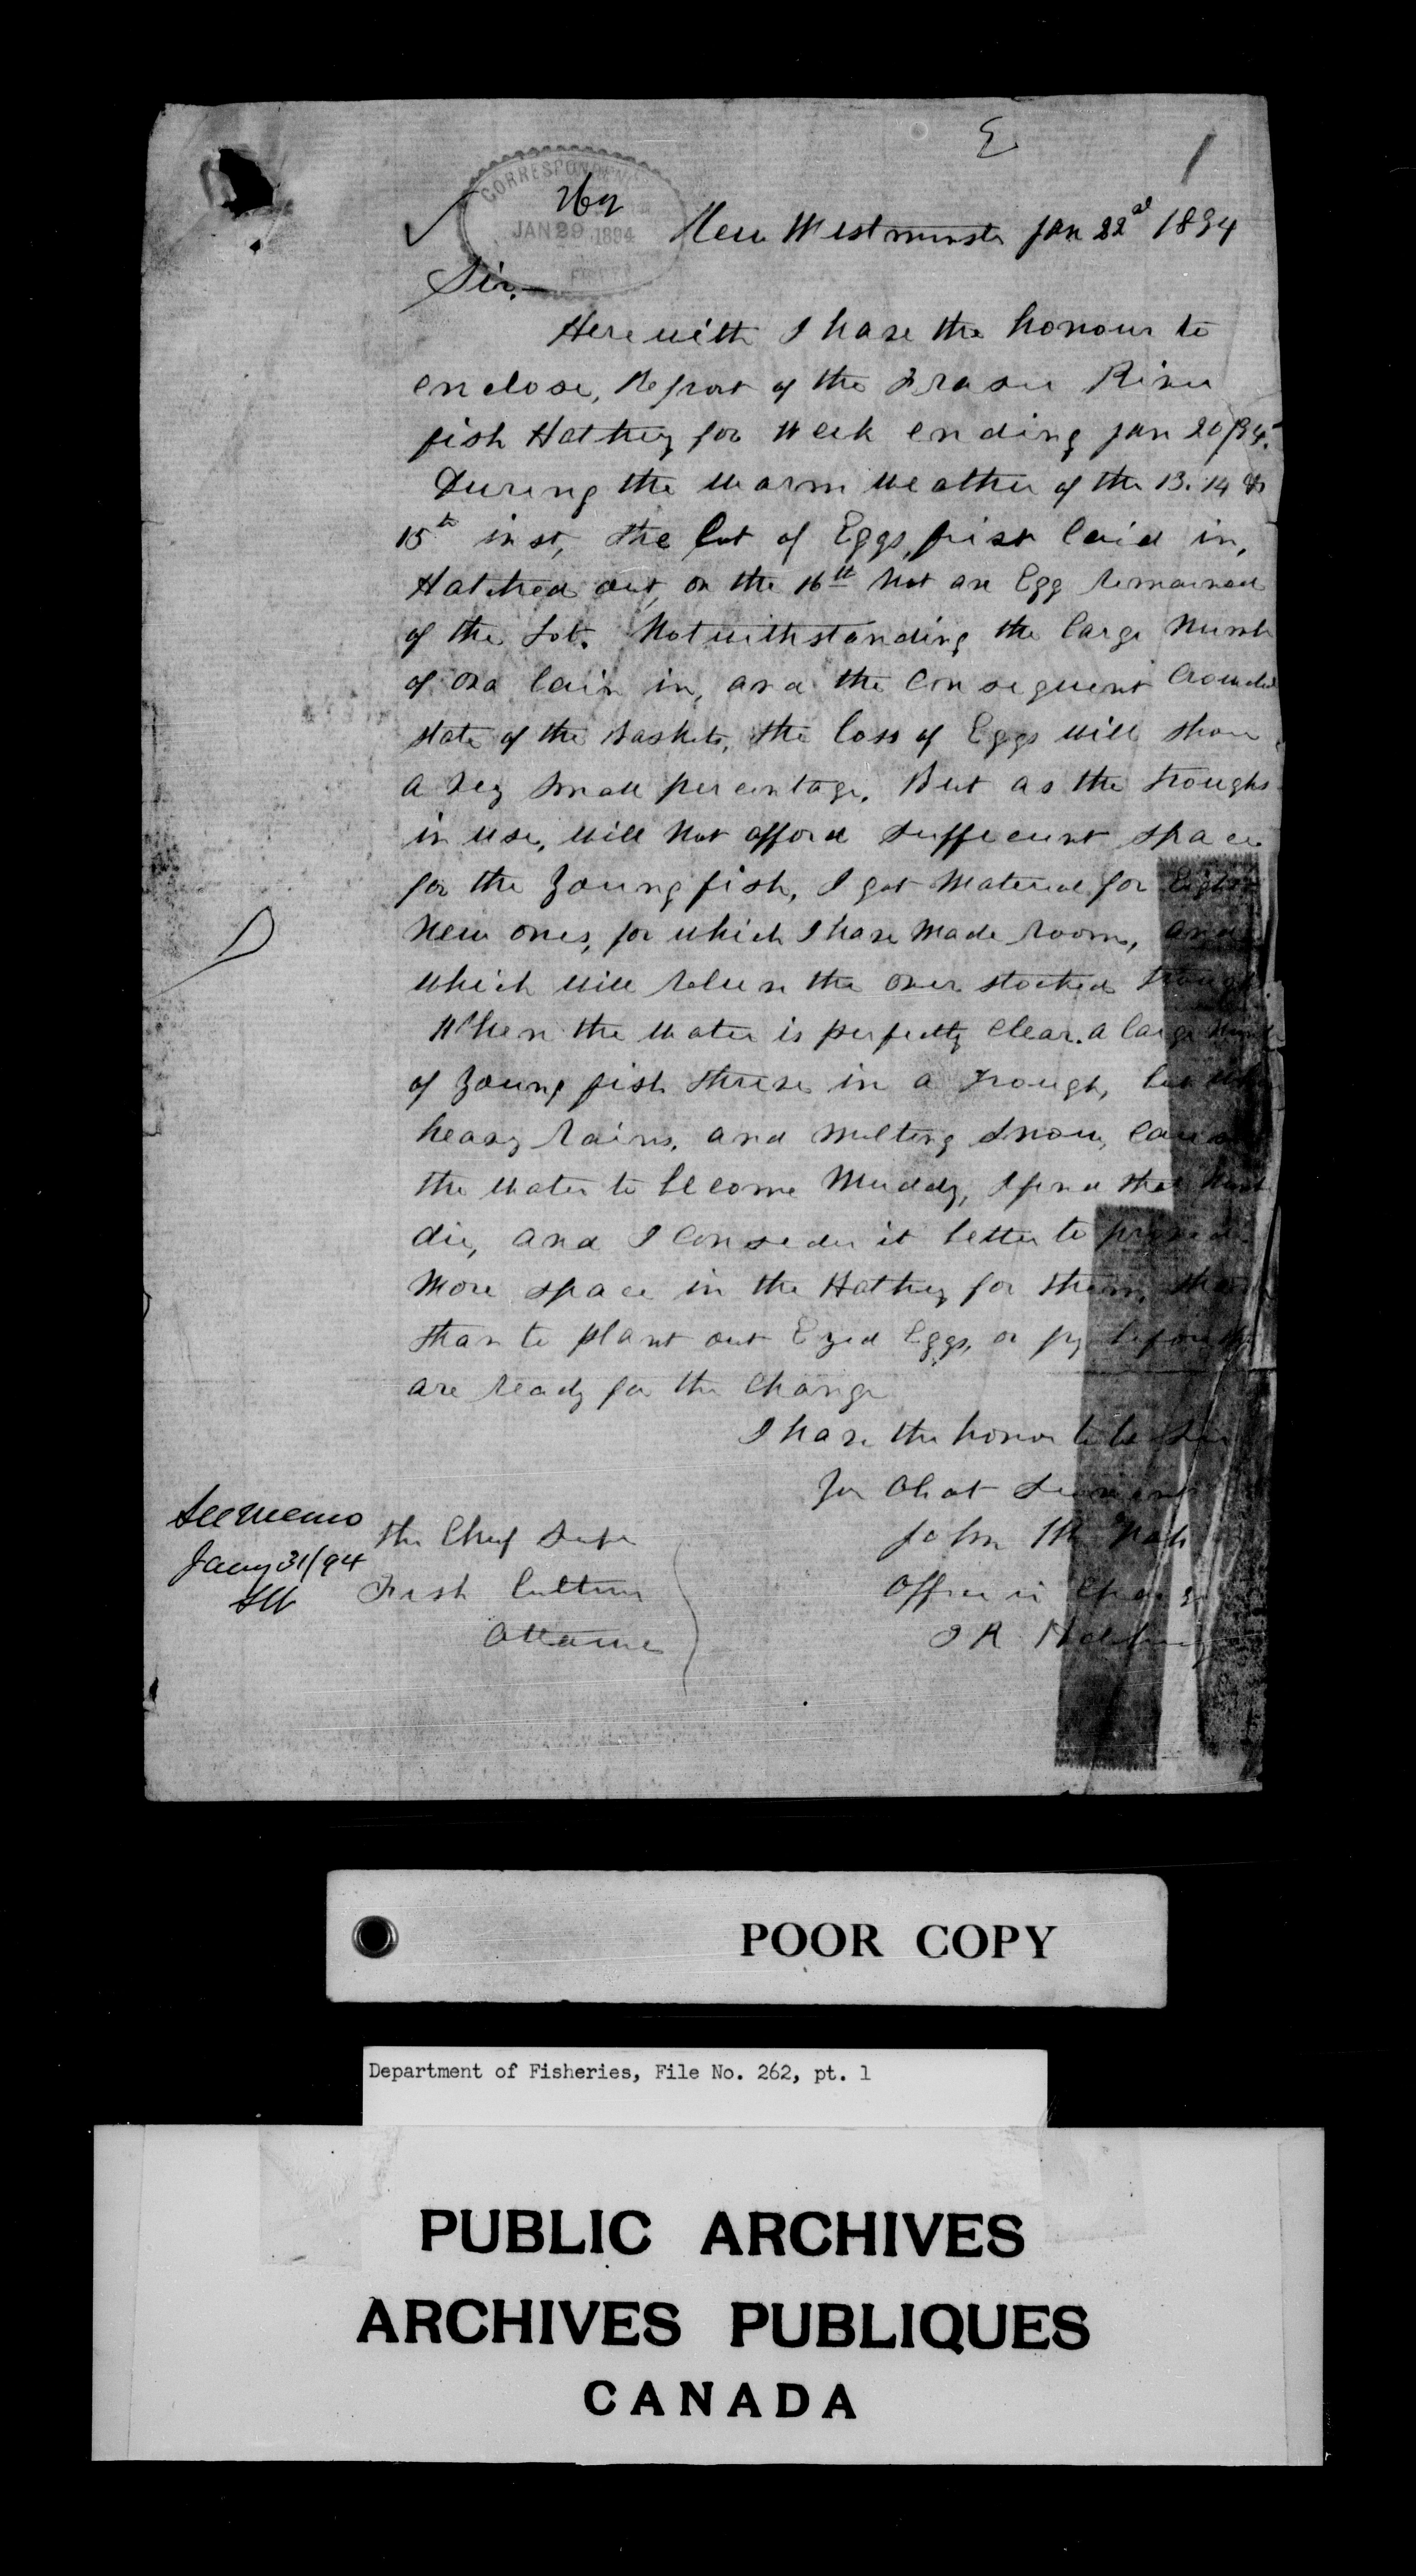 E
1
CORRESPONDENCE
262
JAN 29 1894
New Westminster Jan 22nd 1894
Sir,
Herewith I have the honour to
enclose, Report of the Fraser River
fish Hatchery for Week ending Jan 20/94.
During the warm weather of the 13. 14 &
15th inst, the lot of Eggs, first laid in,
Hatched out, on the 16th Not an Egg remained
of the Lot. Notwithstanding the large Numb
of ova laid in, and the Consequent Crowded
state of the Baskets, the loss of Eggs will show
a very small percentage. But as the troughs
in use, will not afford sufficient space
for the young fish, I got Material for Eight
New ones, for which I have Made room, and
which will relieve the over stocked troughs
When the water is perfectly Clear. a large Numb
of young fish thrive in a trough, but when
heavy rains, and melting snow, cause
the water to become Muddy, I find that
die, and I consider it better to provide
More space in the Hatchery for them,
than to plant out Eyed Eggs, or fry before the
are ready for the Change
I have the honor to be Sir
Your Obdt Servant
John
Officer in Charge
F R Hatchery
The Chief Supt
Fish Culture
Ottawa
See memo
Jany 31/94
POOR COPY
Department of Fisheries, File No. 262, pt. 1
PUBLIC ARCHIVES
ARCHIVES PUBLIQUES
CANADA